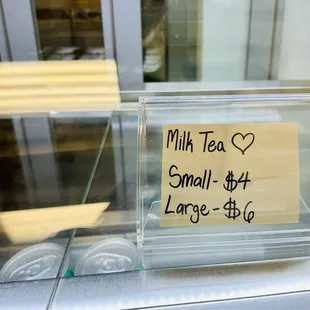 Milk Tea ♡
Small - $4
Large - $6